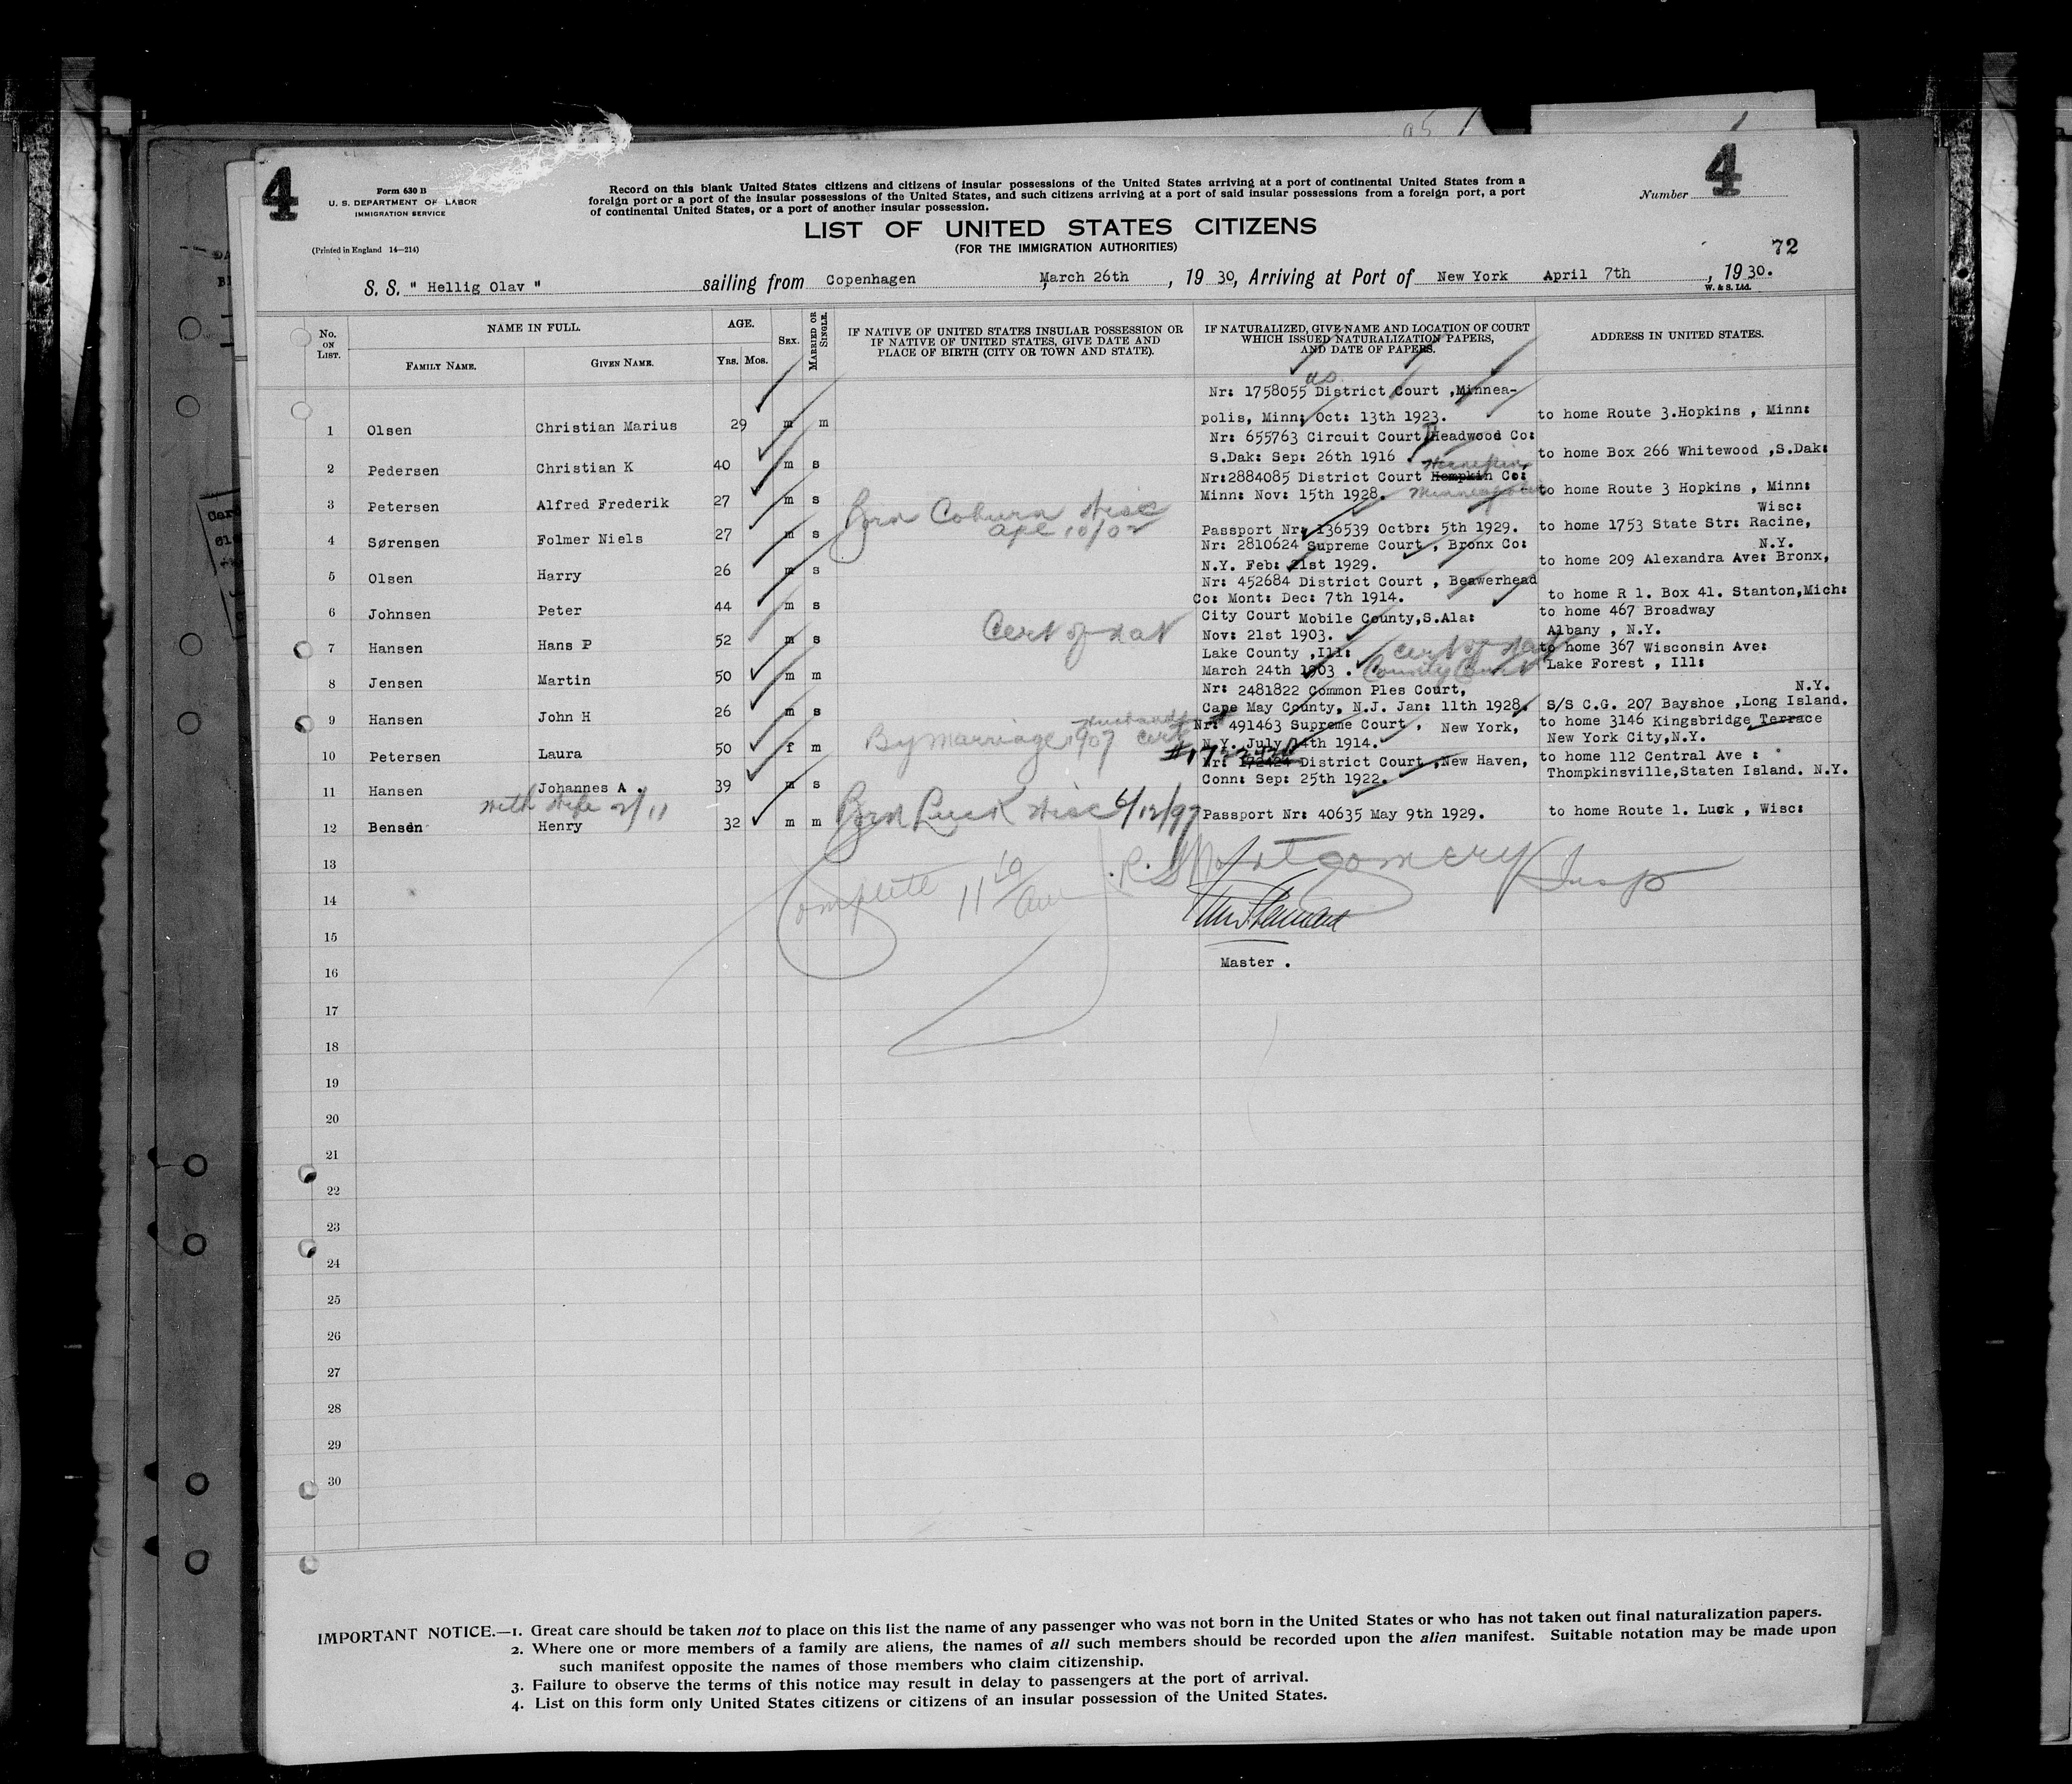 as 1
4
Form 630 B
U. S. DEPARTMENT OF LABOR
IMMIGRATION SERVICE
(Printed in England 14—214)
Record on this blank United States citizens and citizens of insular possessions of the United States arriving at a port of continental United States from a
foreign port or a port of the insular possessions of the United States, and such citizens arriving at a port of said insular possessions from a foreign port, a port
of continental United States, or a port of another insular possession.
Number 4
LIST OF UNITED STATES CITIZENS
(FOR THE IMMIGRATION AUTHORITIES)
72
S. S. " Hellig Olav " sailing from Copenhagen March 26th , 19 30, Arriving at Port of New York April 7th , 19 30.
W. & S. Ltd.
No. ON LIST.
NAME IN FULL.
FAMILY NAME.
GIVEN NAME.
AGE.
YRS. MOS.
SEX.
MARRIED OR SINGLE.
IF NATIVE OF UNITED STATES INSULAR POSSESSION OR
IF NATIVE OF UNITED STATES, GIVE DATE AND
PLACE OF BIRTH (CITY OR TOWN AND STATE).
IF NATURALIZED, GIVE NAME AND LOCATION OF COURT
WHICH ISSUED NATURALIZATION PAPERS,
AND DATE OF PAPERS.
ADDRESS IN UNITED STATES.
us
Nr: 1758055 District Court ,Minnea-
polis, Minn: Oct: 13th 1923. to home Route 3.Hopkins , Minn:
1 Olsen Christian Marius 29 m m
Nr: 655763 Circuit Court Headwood Co:
S.Dak: Sep: 26th 1916 . to home Box 266 Whitewood ,S.Dak:
2 Pedersen Christian K 40 m s
Hennepin
Nr:2884085 District Court Hempkin Co:
Minn: Nov: 15th 1928. Minneapolis to home Route 3 Hopkins , Minn:
3 Petersen Alfred Frederik 27 m s
Born Coburn Wisc
Apl 10/02
Wisc:
Passport Nr: 136539 Octbr: 5th 1929. to home 1753 State Str: Racine,
4 Sørensen Folmer Niels 27 m s
Nr: 2810624 Supreme Court , Bronx Co: N.Y.
N.Y. Feb: 21st 1929. to home 209 Alexandra Ave: Bronx,
5 Olsen Harry 26 m s
Nr: 452684 District Court , Beawerhead
Co: Mont: Dec: 7th 1914. to home R 1. Box 41. Stanton,Mich:
6 Johnsen Peter 44 m s
Cert of nat
City Court Mobile County,S.Ala: to home 467 Broadway
Nov: 21st 1903. Albany , N.Y.
7 Hansen Hans P 52 m s
Lake County ,Ill: cert of nat to home 367 Wisconsin Ave:
March 24th 1903 . County Court Lake Forest , Ill:
8 Jensen Martin 50 m m
Nr: 2481822 Common Ples Court, N.Y.
Cape May County, N.J. Jan: 11th 1928. S/S C.G. 207 Bayshoe ,Long Island.
9 Hansen John H 26 m s
By marriage 1907 husbands cert
Nr: 491463 Supreme Court , New York, to home 3146 Kingsbridge Terrace
N.Y. July 14th 1914. New York City,N.Y.
10 Petersen Laura 50 f m
Nr: 172424 District Court ,New Haven, to home 112 Central Ave :
Conn: Sep: 25th 1922. Thompkinsville,Staten Island. N.Y.
11 Hansen Johannes A . 39 m s
with wife 2/11
Born Luck Wisc 6/12/97
Passport Nr: 40635 May 9th 1929. to home Route 1. Luck , Wisc:
12 Bensen Henry 32 m m
13
R. Montgomery Insp
Complete 11
14
15
Master .
16
17
18
19
20
21
22
23
24
25
26
27
28
29
30
IMPORTANT NOTICE.—1. Great care should be taken not to place on this list the name of any passenger who was not born in the United States or who has not taken out final naturalization papers.
2. Where one or more members of a family are aliens, the names of all such members should be recorded upon the alien manifest. Suitable notation may be made upon
such manifest opposite the names of those members who claim citizenship.
3. Failure to observe the terms of this notice may result in delay to passengers at the port of arrival.
4. List on this form only United States citizens or citizens of an insular possession of the United States.